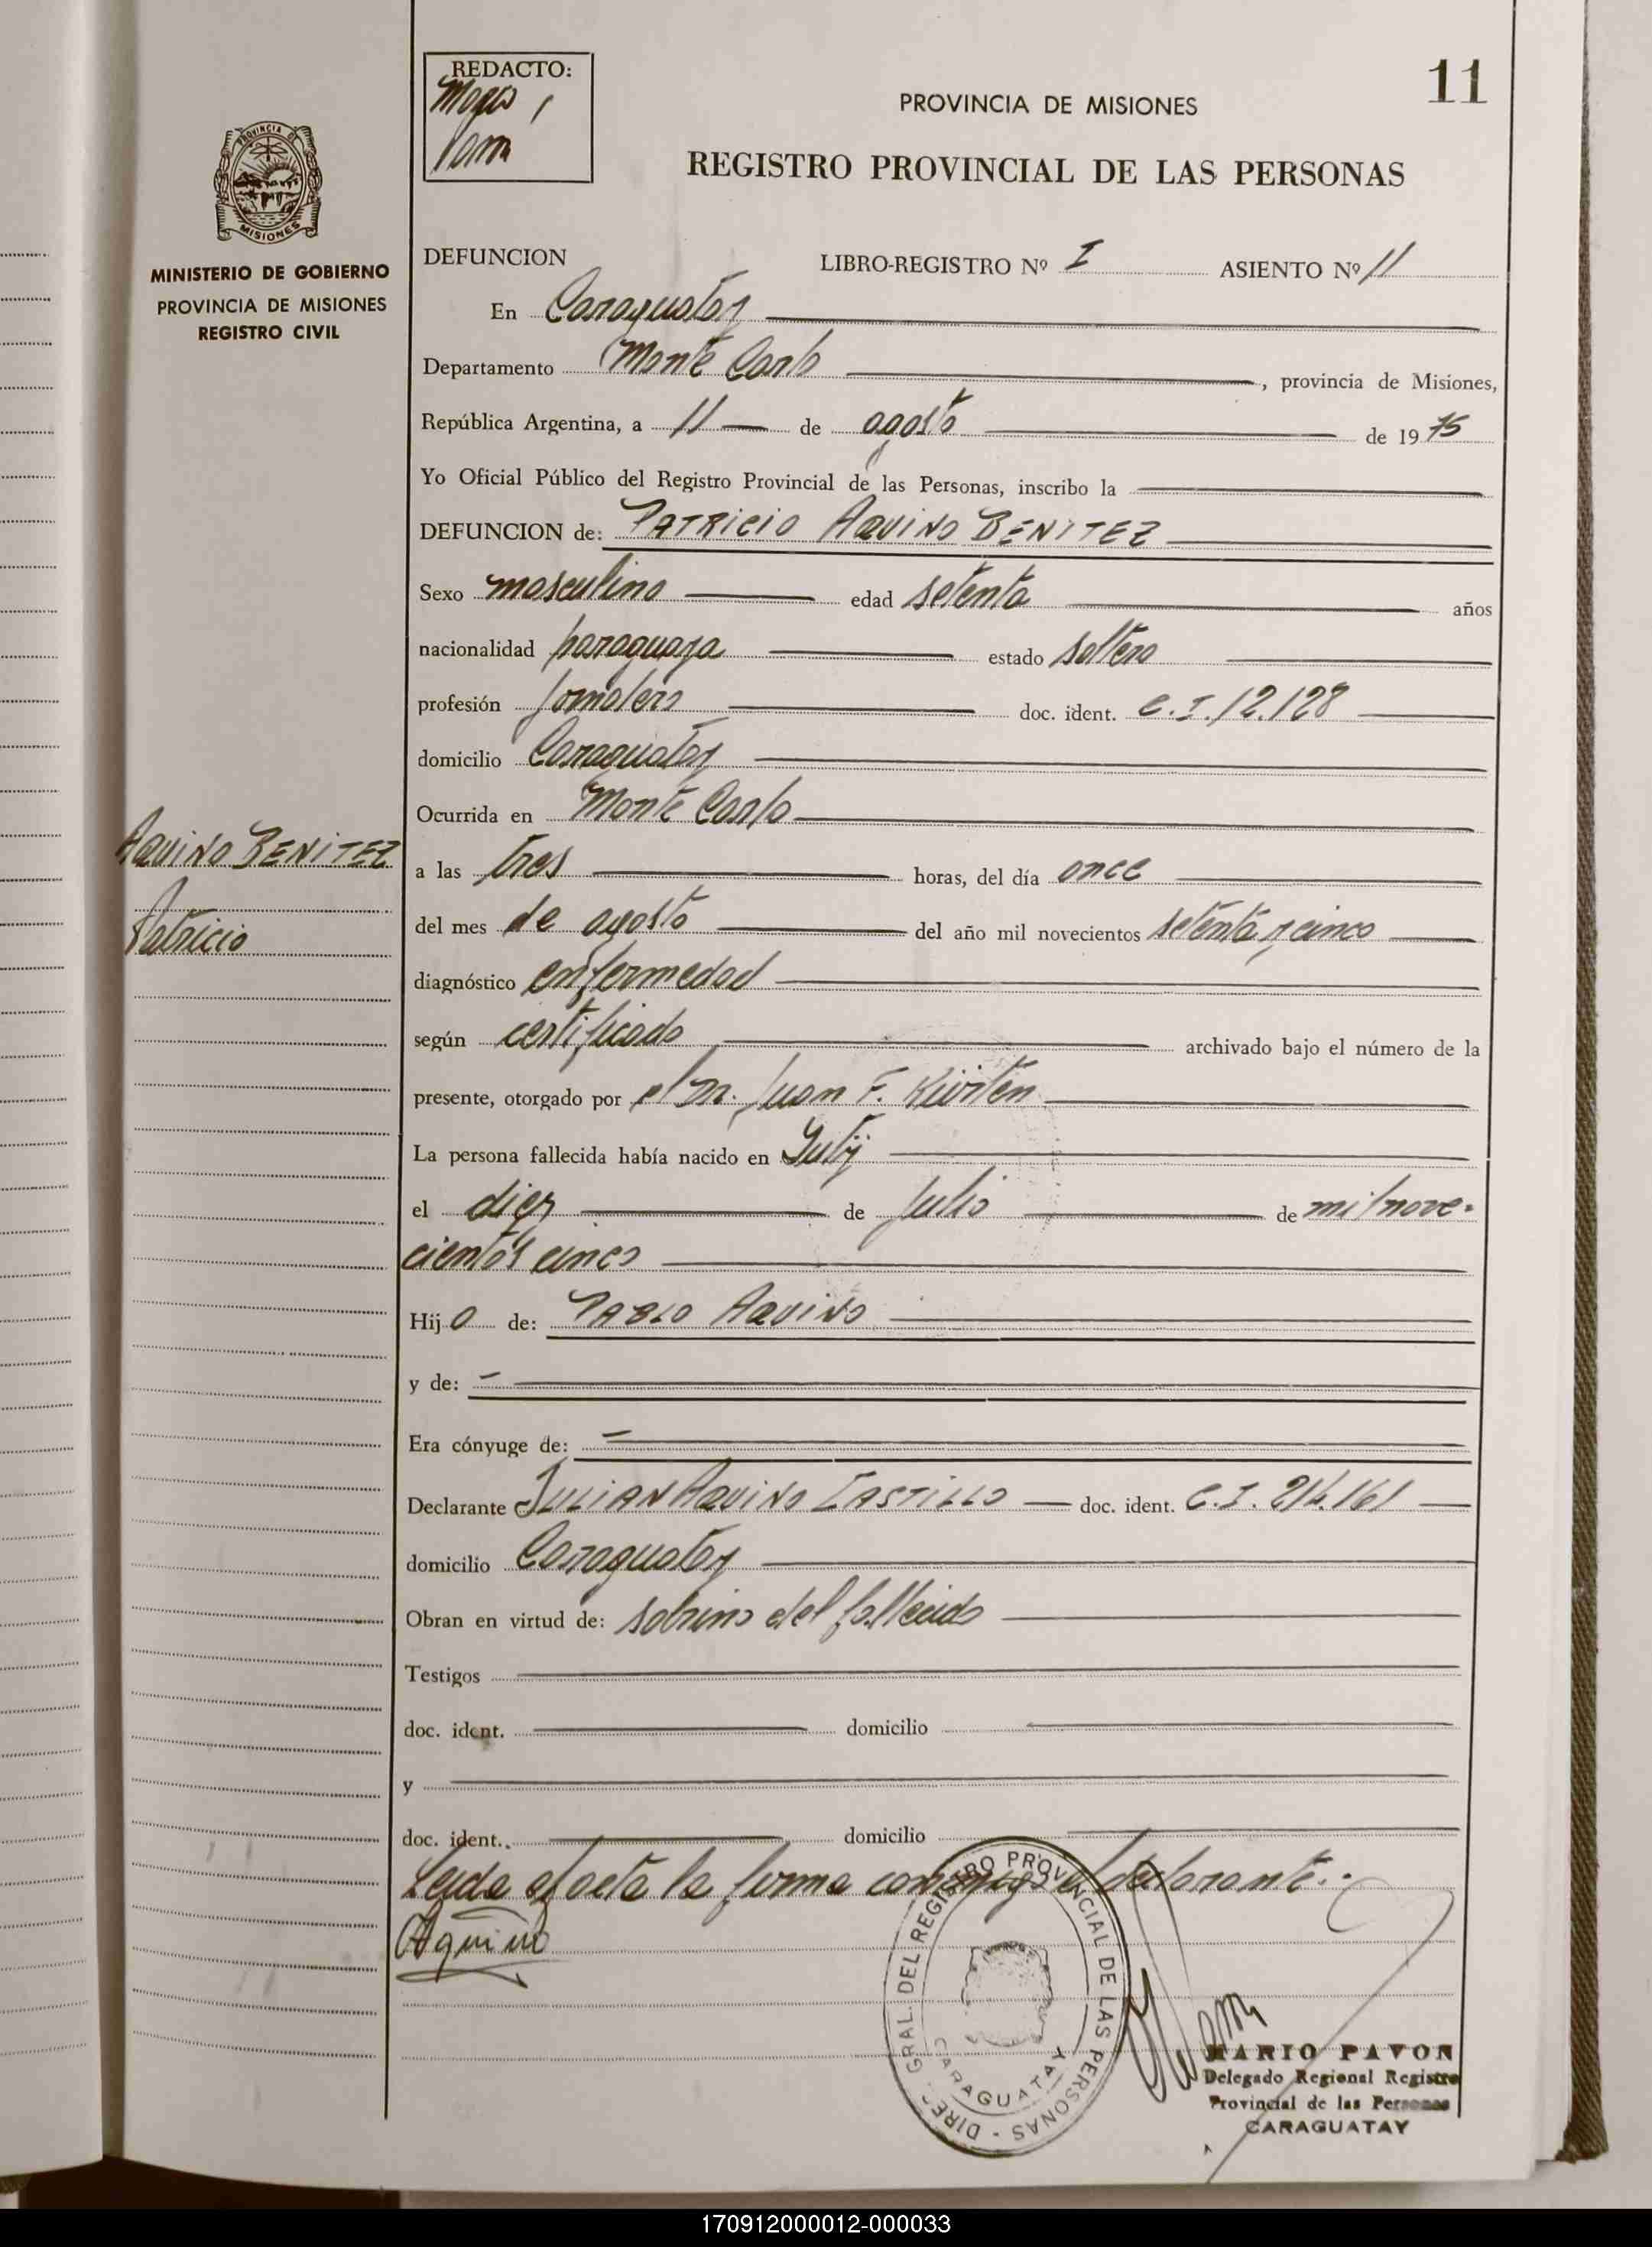 11
REDACTO:
PROVINCIA DE MISIONES
REGISTRO PROVINCIAL DE LAS PERSONAS
PROVINCIA DE
MISIONES
MINISTERIO DE GOBIERNO
PROVINCIA DE MISIONES
REGISTRO CIVIL
AQUINO BENITEZ
Patricio
DEFUNCION LIBRO-REGISTRO Nº I ASIENTO Nº 11
En Caraguatay
Departamento Monte Carlo, provincia de Misiones,
República Argentina, a 11 de agosto de 1975
Yo Oficial Público del Registro Provincial de las Personas, inscribo la
DEFUNCION de: PATRICIO AQUINO BENITEZ
Sexo masculino edad setenta años
nacionalidad paraguaya estado soltero
profesión jornalero doc. ident. C.I. 12.128
domicilio Caraguatay
Ocurrida en Monte Carlo
a las tres horas, del día once
del mes de agosto del año mil novecientos setenta y cinco
diagnóstico enfermedad
según certificado archivado bajo el número de la
presente, otorgado por el Dr. Juan F. Kürten
La persona fallecida había nacido en Yuty
el diez de julio de mil nove-
cientos cinco
Hijo de: PABLO AQUINO
y de: —
Era cónyuge de: —
Declarante JULIAN AQUINO CASTILLO doc. ident. C.I. 214.161
domicilio Caraguatay
Obran en virtud de: sobrino del fallecido
Testigos
doc. ident. domicilio
y
doc. ident. domicilio
Leida el acta la firma conmigo el declarante.
Aquino
DIREC. GRAL. DEL REGISTRO PROVINCIAL DE LAS PERSONAS -
CARAGUATAY
MARIO PAVON
Delegado Regional Registro
Provincial de las Personas
CARAGUATAY
170912000012-000033